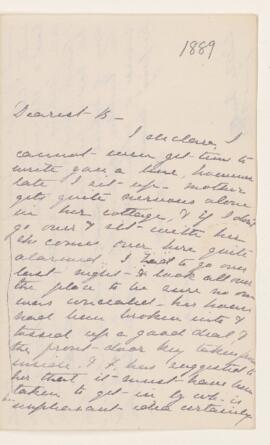 1889
Dearest B -
I declare I
cannot even get time to
write you a line, however
late I sit up - mother
gets quite nervous alone
in her cottage, & if I don't
go over & sit with her
she comes over here quite
alarmed. I had to go over
last night & look all over
the place to be sure no one
was concealed - her house
had been broken into &
tossed up a good deal, &
the front door key taken from
inside. & has suggested to
her that it must have been
taken to get in by wh. is
unpleasant idea certainly